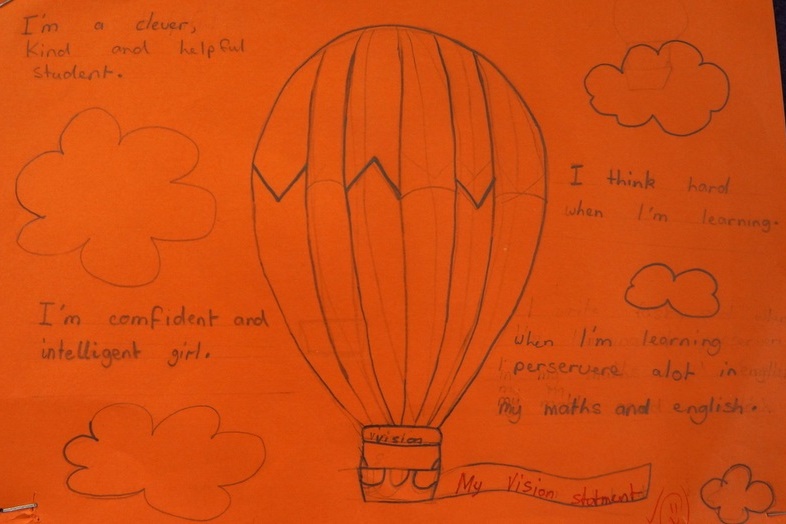 I'm a clever,
kind and helpful
student.
I think hard
when I'm learning.
I'm comfident and
intelligent girl.
when I'm learning
I perservere alot in
my maths and english.
"Vision
My Vision statment